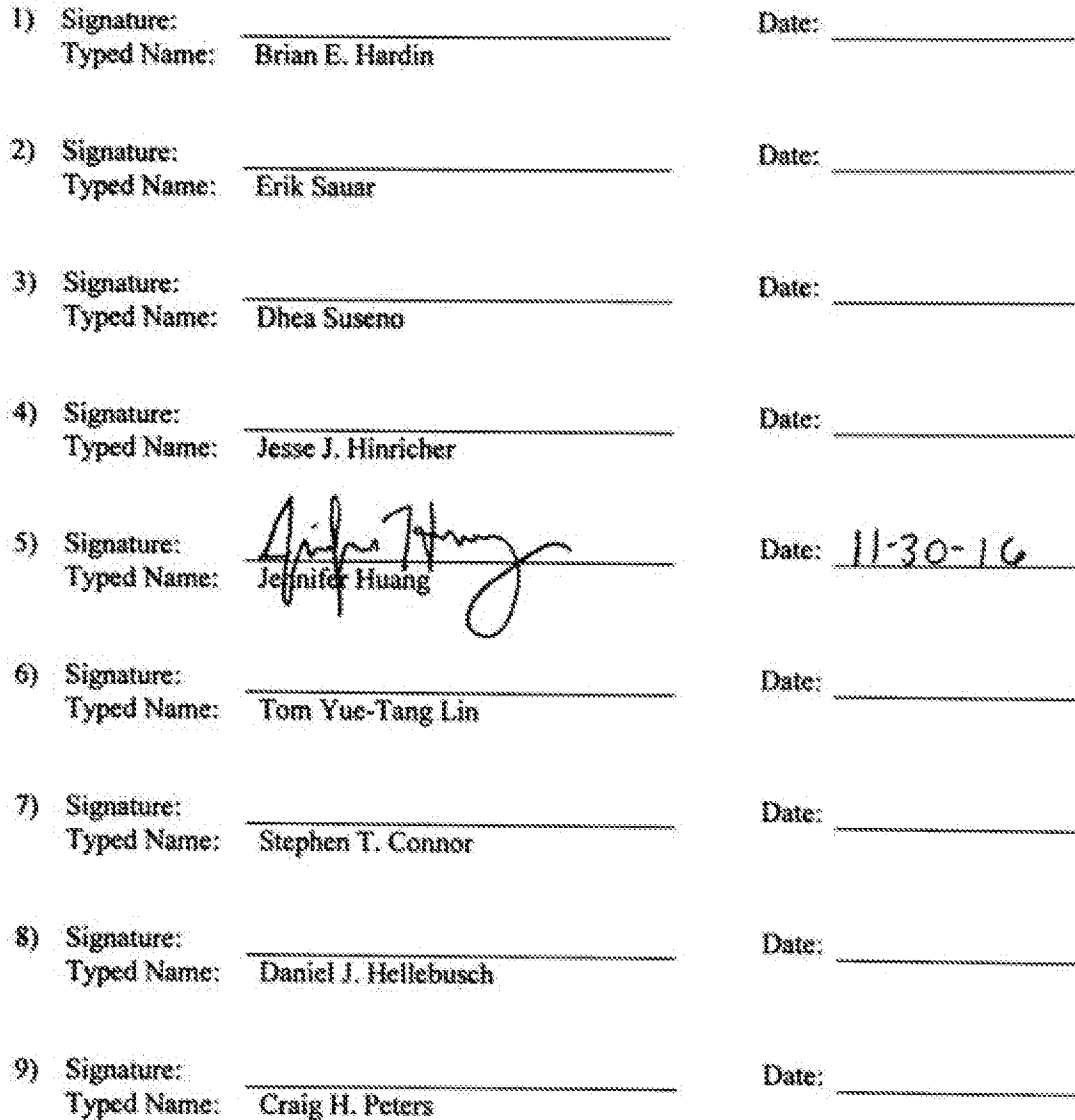 1) Signature: Date:
Typed Name: Brian E. Hardin
2) Signature: Date:
Typed Name: Erik Sauar
3) Signature: Date:
Typed Name: Dhea Suseno
4) Signature: Date:
Typed Name: Jesse J. Hinricher
5) Signature: Jennifer Huang Date: 11-30-16
Typed Name: Jennifer Huang
6) Signature: Date:
Typed Name: Tom Yue-Tang Lin
7) Signature: Date:
Typed Name: Stephen T. Connor
8) Signature: Date:
Typed Name: Daniel J. Hellebusch
9) Signature: Date:
Typed Name: Craig H. Peters